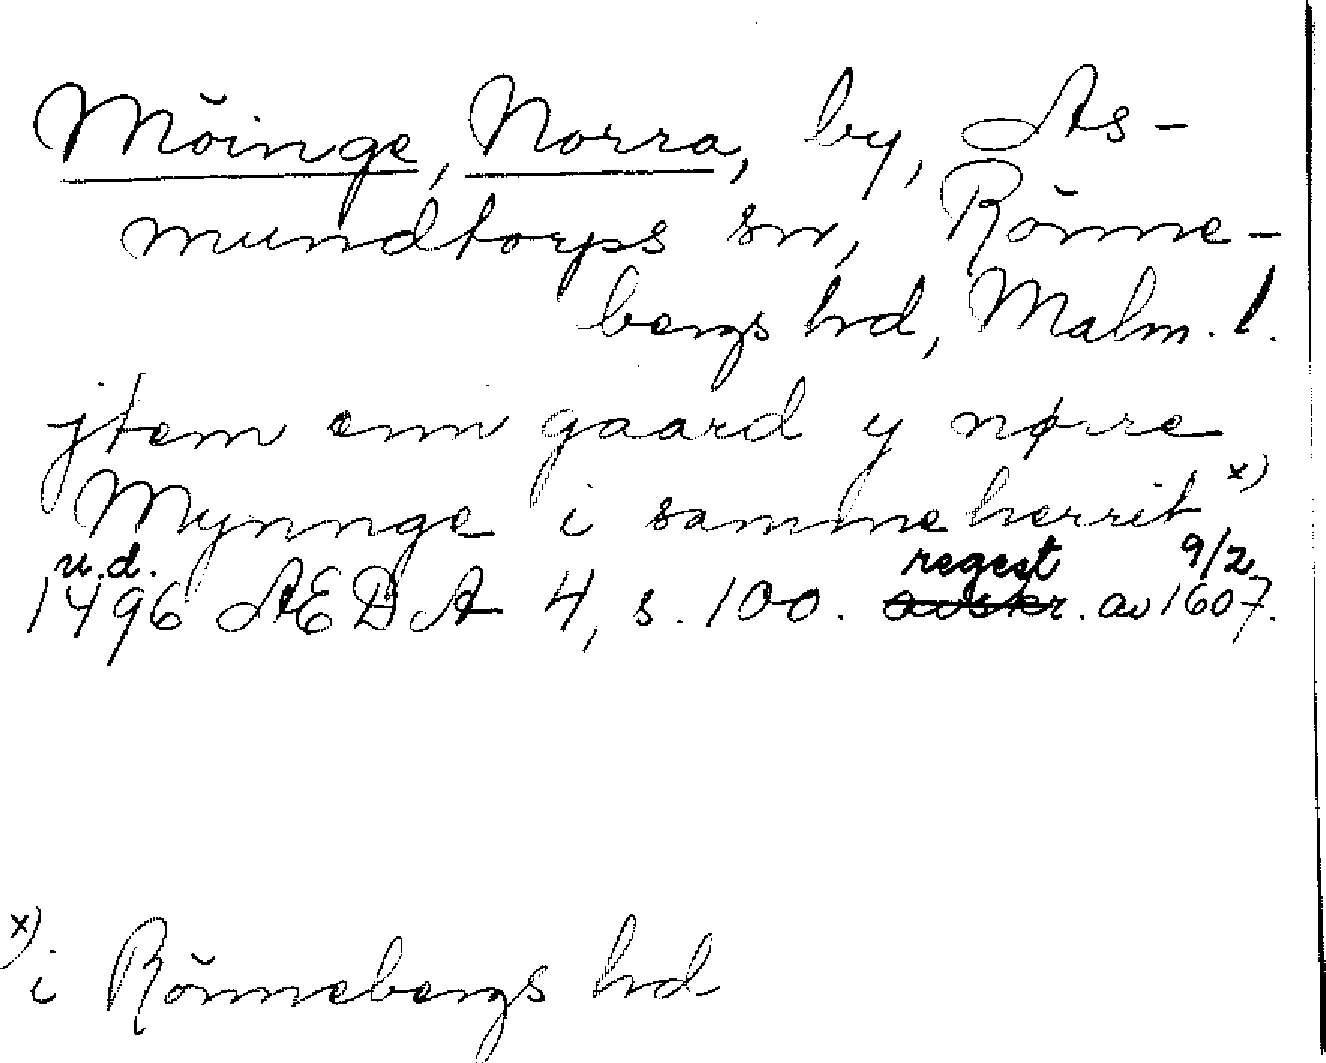 Möinge, Norra, by, As-
mundtorps sn, Rönne-
bergs hd, Malm. l.
jtem enn gaard y nørre
Mynnge i samme herrit x)
u.d. regest 9/2
1496 AEDA 4, s. 100. avskr. av 1607.
x)
i Rönnebergs hd